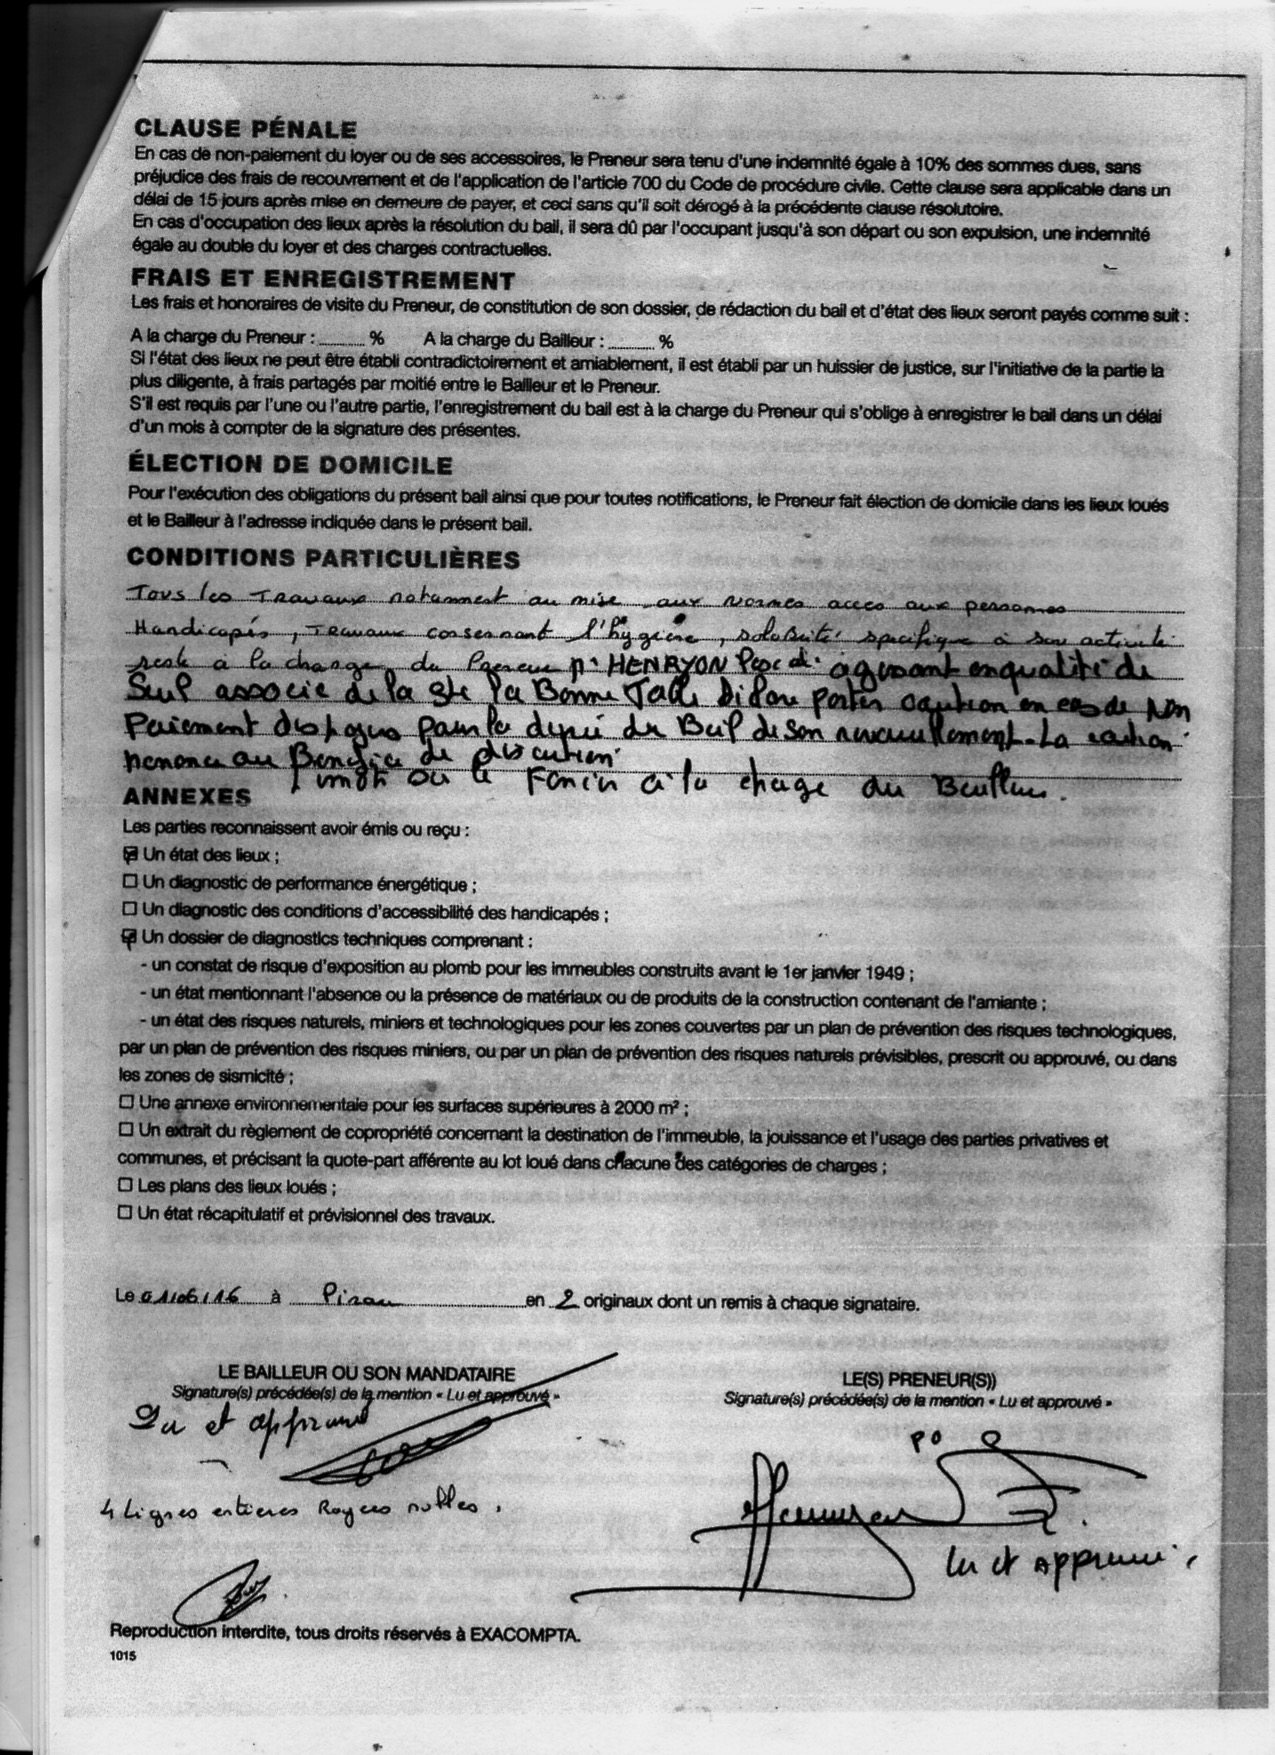 CLAUSE PÉNALE
En cas de non-paiement du loyer ou de ses accessoires, le Preneur sera tenu d'une indemnité égale à 10% des sommes dues, sans
préjudice des frais de recouvrement et de l'application de l'article 700 du Code de procédure civile. Cette clause sera applicable dans un
délai de 15 jours après mise en demeure de payer, et ceci sans qu'il soit dérogé à la précédente clause résolutoire.
En cas d'occupation des lieux après la résolution du bail, il sera dû par l'occupant jusqu'à son départ ou son expulsion, une indemnité
égale au double du loyer et des charges contractuelles.
FRAIS ET ENREGISTREMENT
Les frais et honoraires de visite du Preneur, de constitution de son dossier, de rédaction du bail et d'état des lieux seront payés comme suit :
A la charge du Preneur : ........... % A la charge du Bailleur : ........... %
Si l'état des lieux ne peut être établi contradictoirement et amiablement, il est établi par un huissier de justice, sur l'initiative de la partie la
plus diligente, à frais partagés par moitié entre le Bailleur et le Preneur.
S'il est requis par l'une ou l'autre partie, l'enregistrement du bail est à la charge du Preneur qui s'oblige à enregistrer le bail dans un délai
d'un mois à compter de la signature des présentes.
ÉLECTION DE DOMICILE
Pour l'exécution des obligations du présent bail ainsi que pour toutes notifications, le Preneur fait élection de domicile dans les lieux loués
et le Bailleur à l'adresse indiquée dans le présent bail.
CONDITIONS PARTICULIÈRES
Tous les Travaux notamment au mise aux normes acces aux personnes
Handicapés, Travaux consernant l'hygiène, spécifique à son activité
reste à la charge du Preneur Mr HENRYON agissant en qualité de
Seul associé de la Sté la Bonne Table porter caution en cas de Non
Paiement des pour la du Bail de son renouvellement. La caution
renonce au Benefice de discution
Fonçier à la charge du Bailleur.
ANNEXES
Les parties reconnaissent avoir émis ou reçu :
☑ Un état des lieux ;
☐ Un diagnostic de performance énergétique ;
☐ Un diagnostic des conditions d'accessibilité des handicapés ;
☑ Un dossier de diagnostics techniques comprenant :
- un constat de risque d'exposition au plomb pour les immeubles construits avant le 1er janvier 1949 ;
- un état mentionnant l'absence ou la présence de matériaux ou de produits de la construction contenant de l'amiante ;
- un état des risques naturels, miniers et technologiques pour les zones couvertes par un plan de prévention des risques technologiques,
par un plan de prévention des risques miniers, ou par un plan de prévention des risques naturels prévisibles, prescrit ou approuvé, ou dans
les zones de sismicité ;
☐ Une annexe environnementale pour les surfaces supérieures à 2000 m² ;
☐ Un extrait du règlement de copropriété concernant la destination de l'immeuble, la jouissance et l'usage des parties privatives et
communes, et précisant la quote-part afférente au lot loué dans chacune des catégories de charges ;
☐ Les plans des lieux loués ;
☐ Un état récapitulatif et prévisionnel des travaux.
Le 01/06/16 à Pirou en 2 originaux dont un remis à chaque signataire.
LE BAILLEUR OU SON MANDATAIRE
Signature(s) précédée(s) de la mention « Lu et approuvé »
Lu et approuvé
4 Lignes entieres Rayees nulles.
LE(S) PRENEUR(S))
Signature(s) précédée(s) de la mention « Lu et approuvé »
PO
Lu et Approuvé
Reproduction interdite, tous droits réservés à EXACOMPTA.
1015